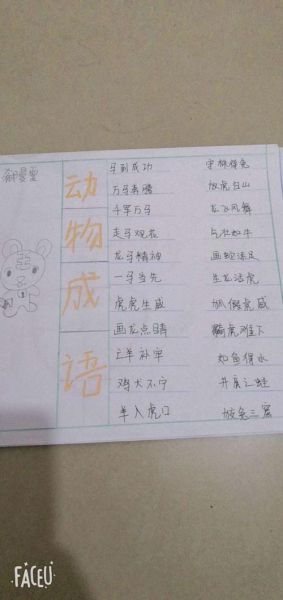 动物成语
马到成功 守株待兔
万马奔腾 放虎归山
千军万马 龙飞凤舞
走马观花 气壮如牛
龙马精神 画蛇添足
一马当先 生龙活虎
虎虎生威 狐假虎威
画龙点睛 骑虎难下
亡羊补牢 如鱼得水
鸡犬不宁 井底之蛙
羊入虎口 狡兔三窟
FACEU